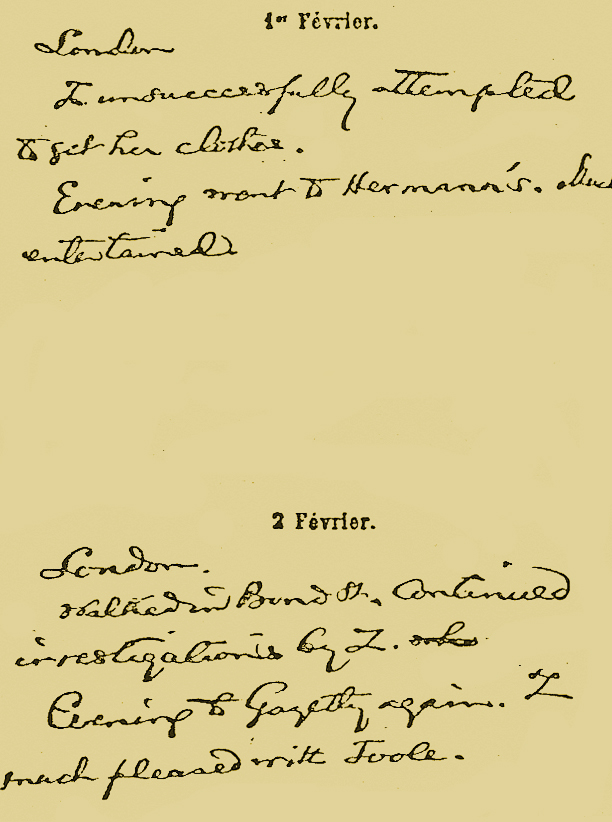 1er Février.
London
Z unsuccessfully attempted
to get her clothes.
Evening went to Hermann's. Much
entertained
2 Février.
London.
Walked in Bond St. Continued
investigations by Z.
Evening to Gayetty again. Z
much pleased with Toole.